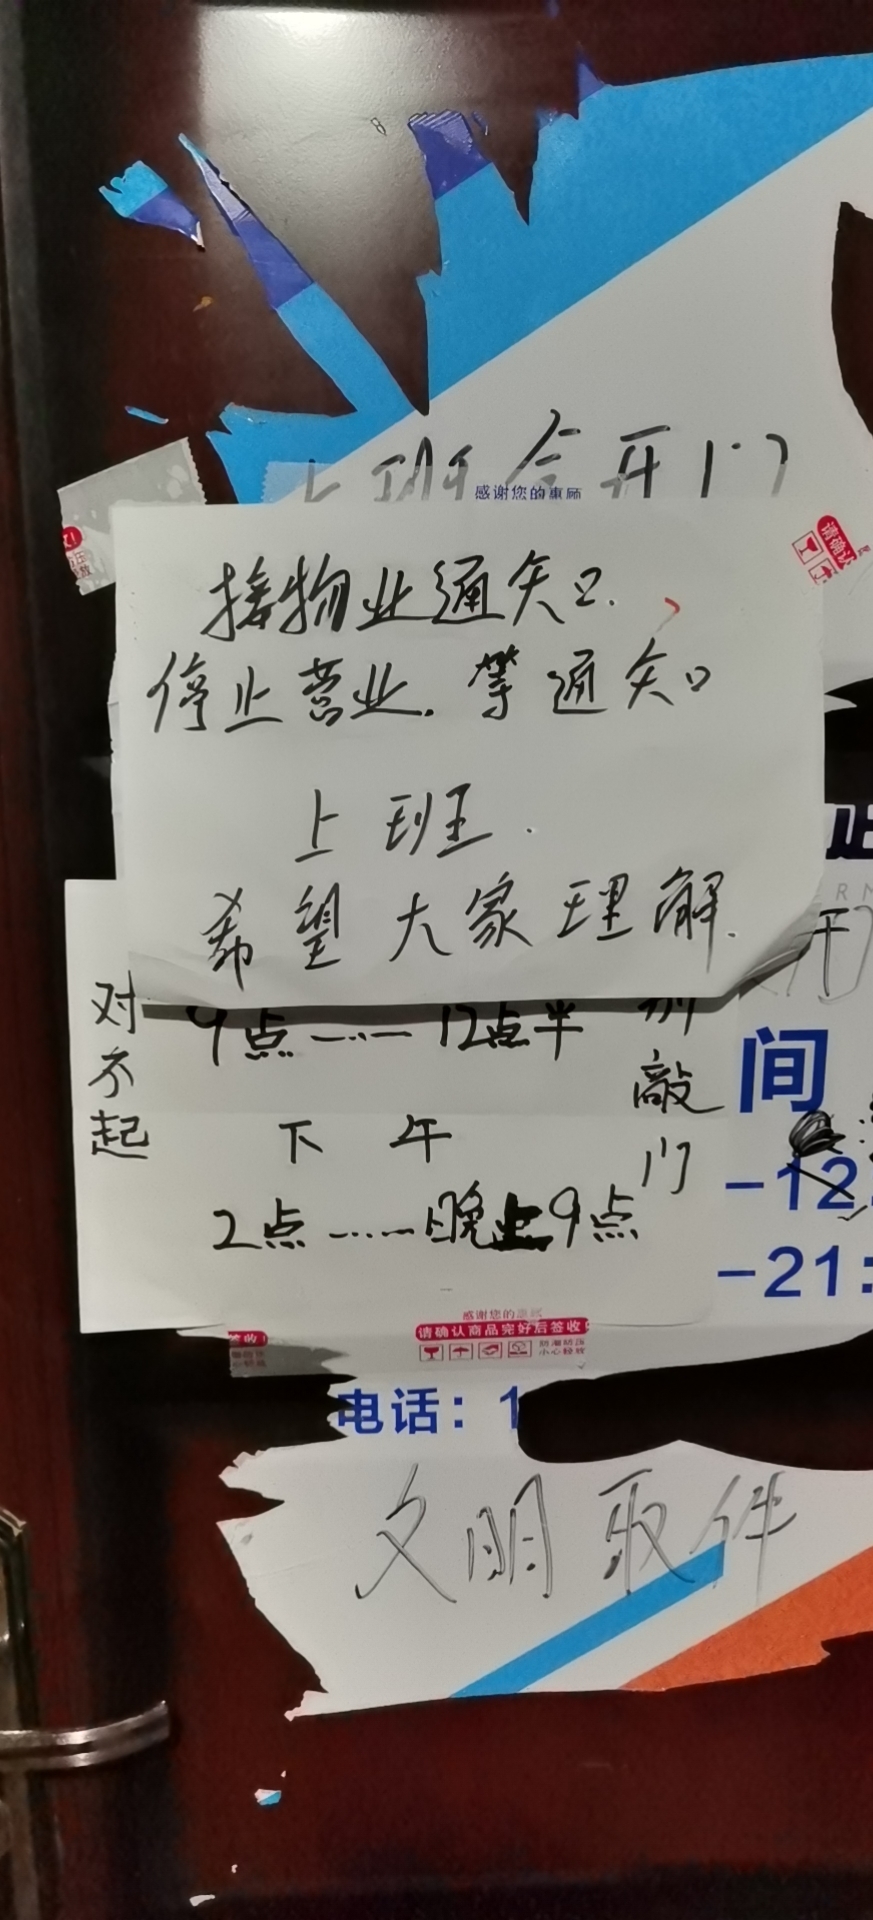 上班会开门
感谢您的惠顾
请确认
接物业通知.
停止营业.等通知
上班.
希望大家理解.
对不起
9点……12点半
别敲门
下午
2点……晚上9点
间
-12
-21:
感谢您的惠顾
请确认商品完好后签收!
防潮防压
小心轻放
电话:1
文明取件